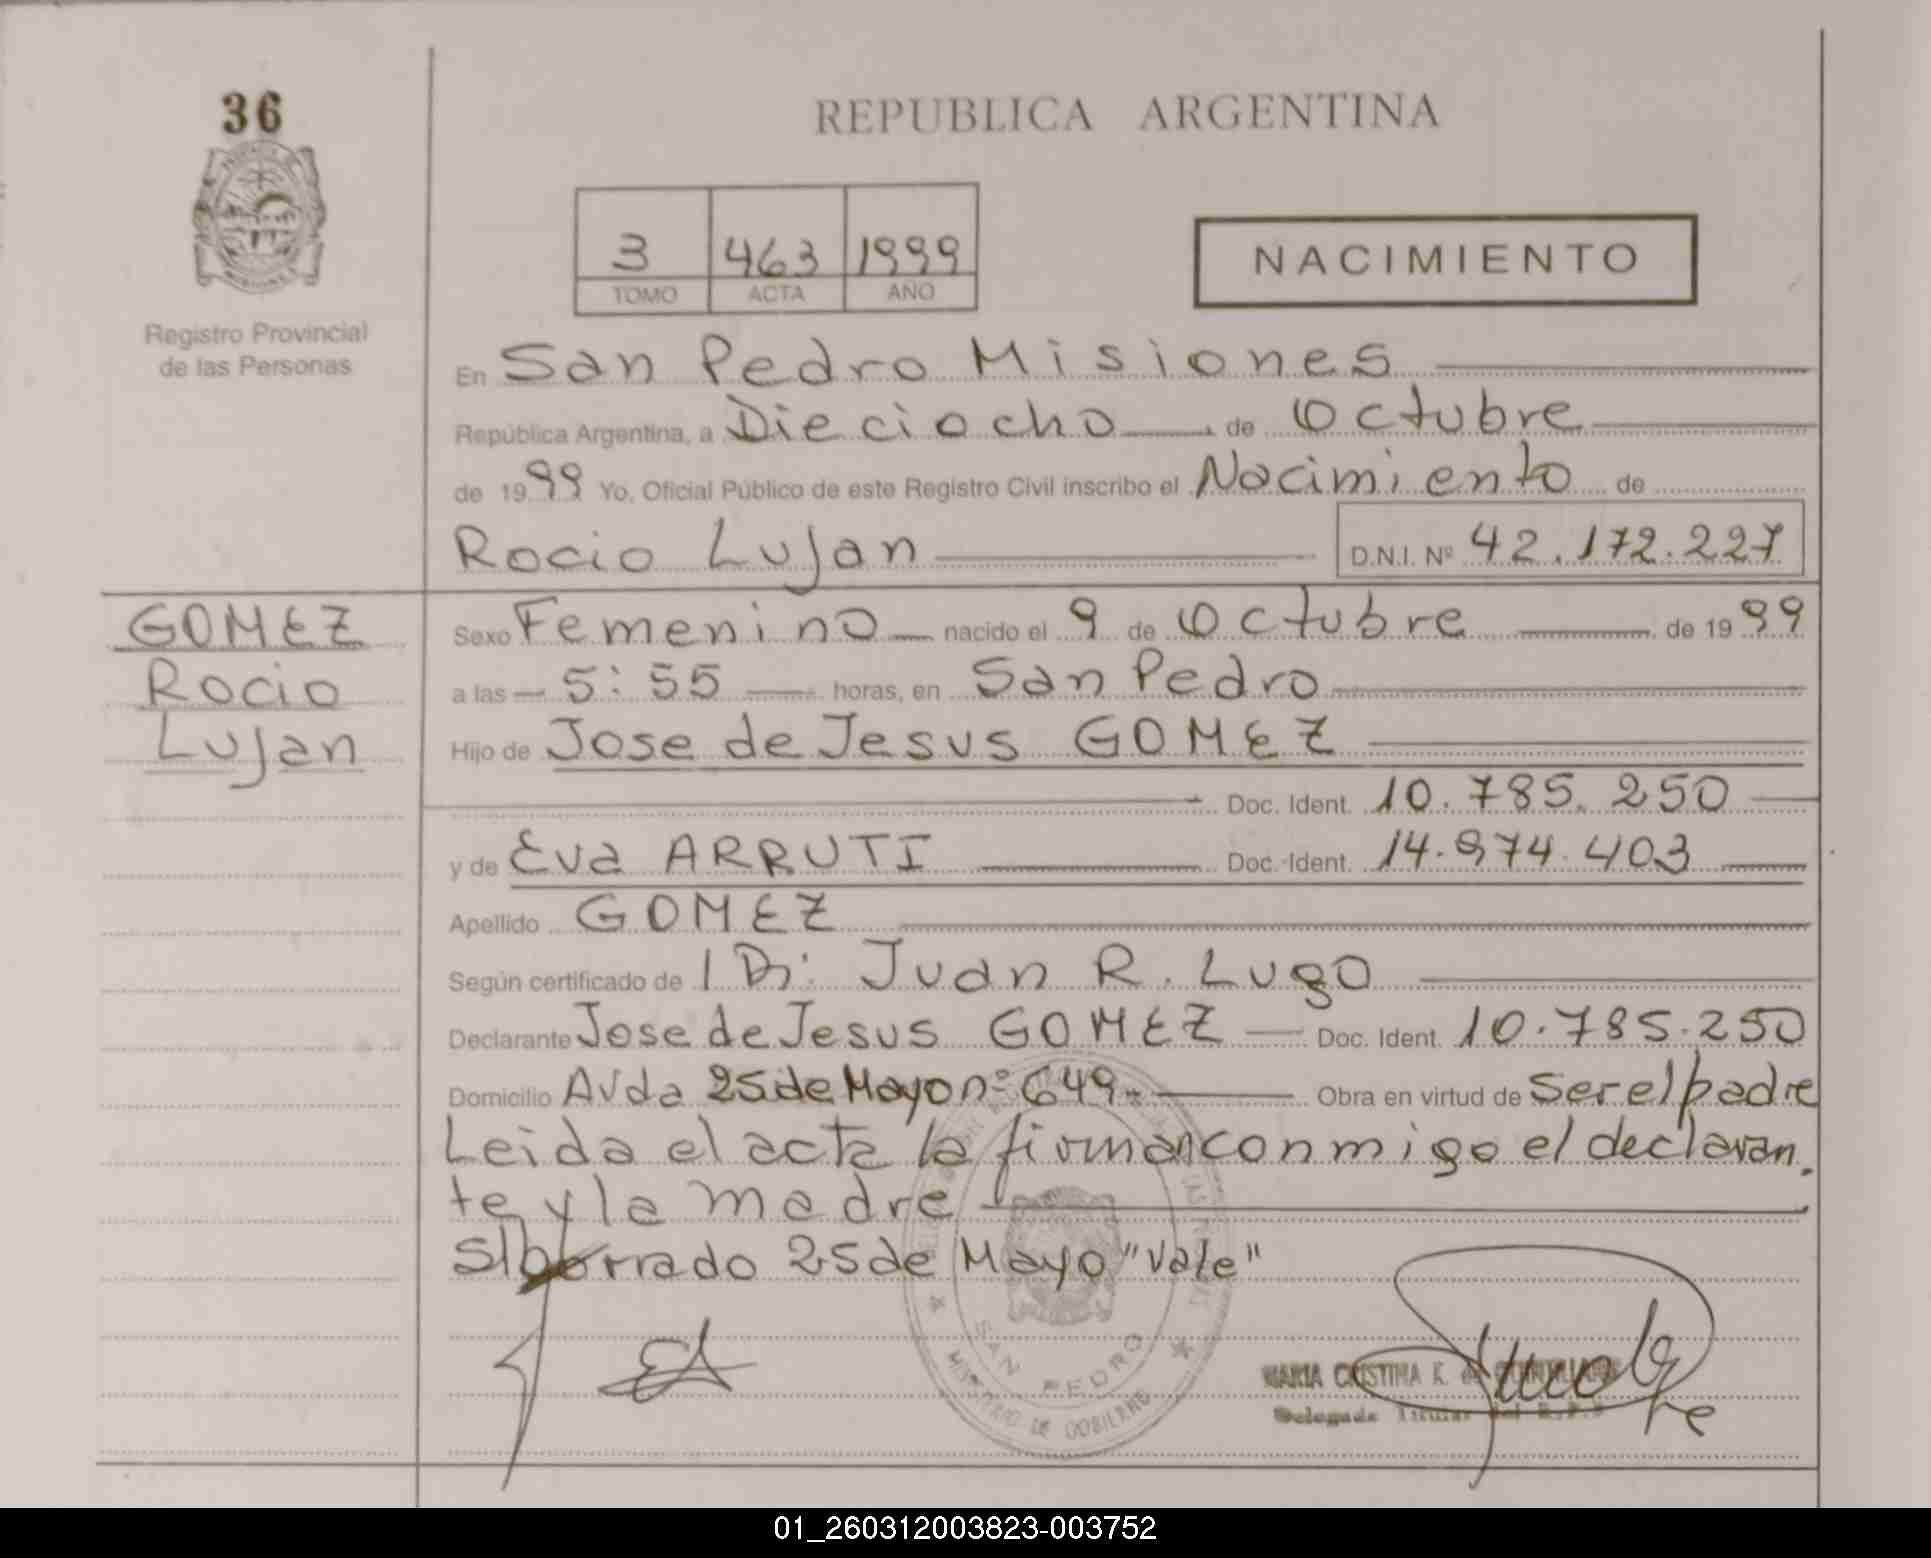 36
REPUBLICA ARGENTINA
3 463 1999
TOMO ACTA AÑO
NACIMIENTO
Registro Provincial
de las Personas
En San Pedro Misiones
República Argentina, a Dieciocho de Octubre
de 1999 Yo, Oficial Público de este Registro Civil inscribo el Nacimiento de
Rocio Lujan D.N.I. Nº 42.172.227
GOMEZ
Rocio
Lujan
Sexo Femenino nacido el 9 de Octubre de 1999
a las 5:55 horas, en San Pedro
Hijo de Jose de Jesus GOMEZ
Doc. Ident. 10.785.250
y de Eva ARRUTI Doc. Ident. 14.974.403
Apellido GOMEZ
Según certificado de Dr: Juan R. Lugo
Declarante Jose de Jesus GOMEZ Doc. Ident. 10.785.250
Domicilio Avda 25 de Mayo nº 649 Obra en virtud de Ser el padre
Leida el acta la firman conmigo el declaran.
te y la madre
S/borrado 25 de Mayo "Vale"
SAN PEDRO
MINISTERIO DE GOBIERNO
MARIA CRISTINA K. de
Delegada Titular del R.P.P
01_260312003823-003752